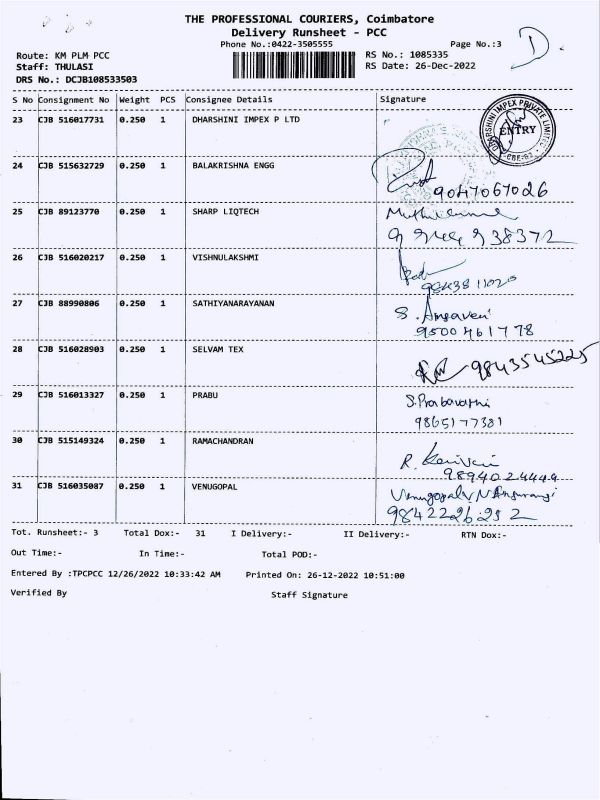 THE PROFESSIONAL COURIERS, Coimbatore
Delivery Runsheet - PCC
Phone No.:0422-3505555 Page No.:3
D.
Route: KM PLM PCC RS No.: 1085335
Staff: THULASI RS Date: 26-Dec-2022
DRS No.: DCJB108533503
S No Consignment No Weight PCS Consignee Details Signature
23 CJB 516017731 0.250 1 DHARSHINI IMPEX P LTD
DHARSHINI IMPEX PRIVATE LIMITED
ENTRY
24 CJB 515632729 0.250 1 BALAKRISHNA ENGG
9047067026
25 CJB 89123770 0.250 1 SHARP LIQTECH
38372
26 CJB 516020217 0.250 1 VISHNULAKSHMI
27 CJB 88990806 0.250 1 SATHIYANARAYANAN
S.
9500461778
28 CJB 516028903 0.250 1 SELVAM TEX
9843545225
29 CJB 516013327 0.250 1 PRABU
S.Prabavathi
9865177381
30 CJB 515149324 0.250 1 RAMACHANDRAN
R.
9894024444
31 CJB 516035087 0.250 1 VENUGOPAL
Venugopal
9842226292
Tot. Runsheet:- 3 Total Dox:- 31 I Delivery:- II Delivery:- RTN Dox:-
Out Time:- In Time:- Total POD:-
Entered By :TPCPCC 12/26/2022 10:33:42 AM Printed On: 26-12-2022 10:51:00
Verified By Staff Signature